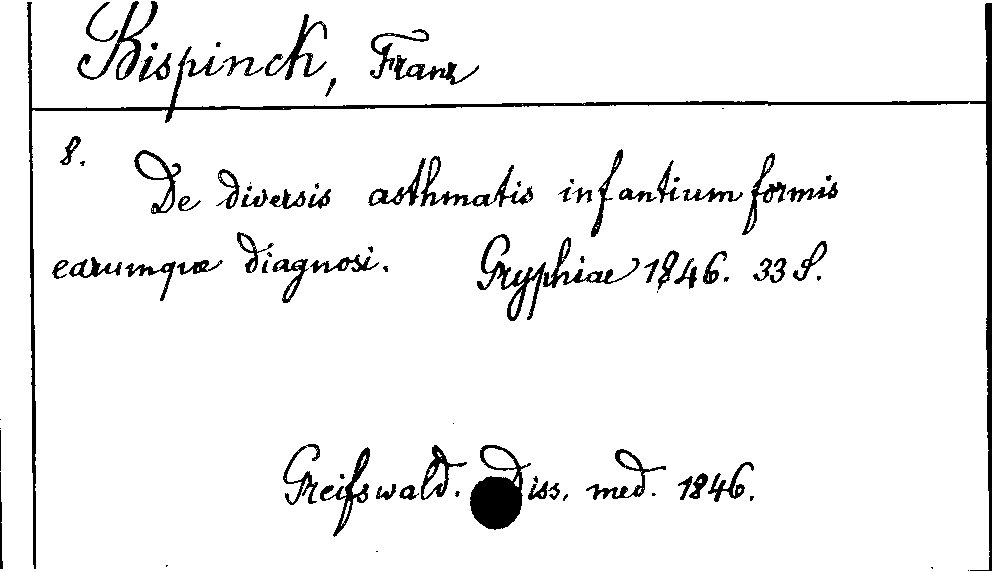 Bispinck, Franz
8.
De diversis asthmatis infantium formis
earumque diagnosi. Gryphiae 1846. 33 S.
Greifswald. Diss. med. 1846.